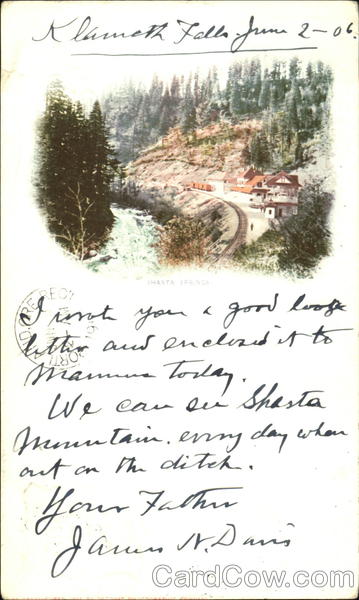 Klameth Falls June 2-06.
SHASTA SPRINGS
I wrote you a good long
letter and enclosed it to
Mamma today.
We can see Shasta
Mountain. every day when
out on the ditch.
Your Father
James N. Davis
CardCow.com